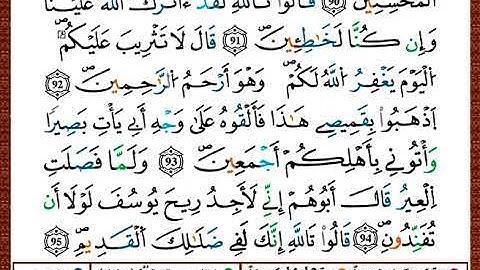 الْمُحْسِنِينَ ۝٩٠ قَالُوا۟ تَاللَّهِ لَقَدْ ءَاثَرَكَ اللَّهُ عَلَيْنَا
وَإِن كُنَّا لَخَٰطِـِٔينَ ۝٩١ قَالَ لَا تَثْرِيبَ عَلَيْكُمُ
اُ۬لْيَوْمَ يَغْفِرُ اللَّهُ لَكُمْ وَهُوَ أَرْحَمُ الرَّٰحِمِينَ ۝٩٢
اَ۪ذْهَبُوا۟ بِقَمِيصِے هَٰذَا فَأَلْقُوهُ عَلَىٰ وَجْهِ أَبِي يَأْتِ بَصِيرًا
وَأْتُونِي بِأَهْلِكُمْ أَجْمَعِينَ ۝٩٣ وَلَمَّا فَصَلَتِ
اِ۬لْعِيرُ قَالَ أَبُوهُمْ إِنِّي لَأَجِدُ رِيحَ يُوسُفَ لَوْلَا أَن
تُفَنِّدُونِ ۝٩٤ قَالُوا۟ تَاللَّهِ إِنَّكَ لَفِي ضَلَٰلِكَ الْقَدِيمِ ۝٩٥